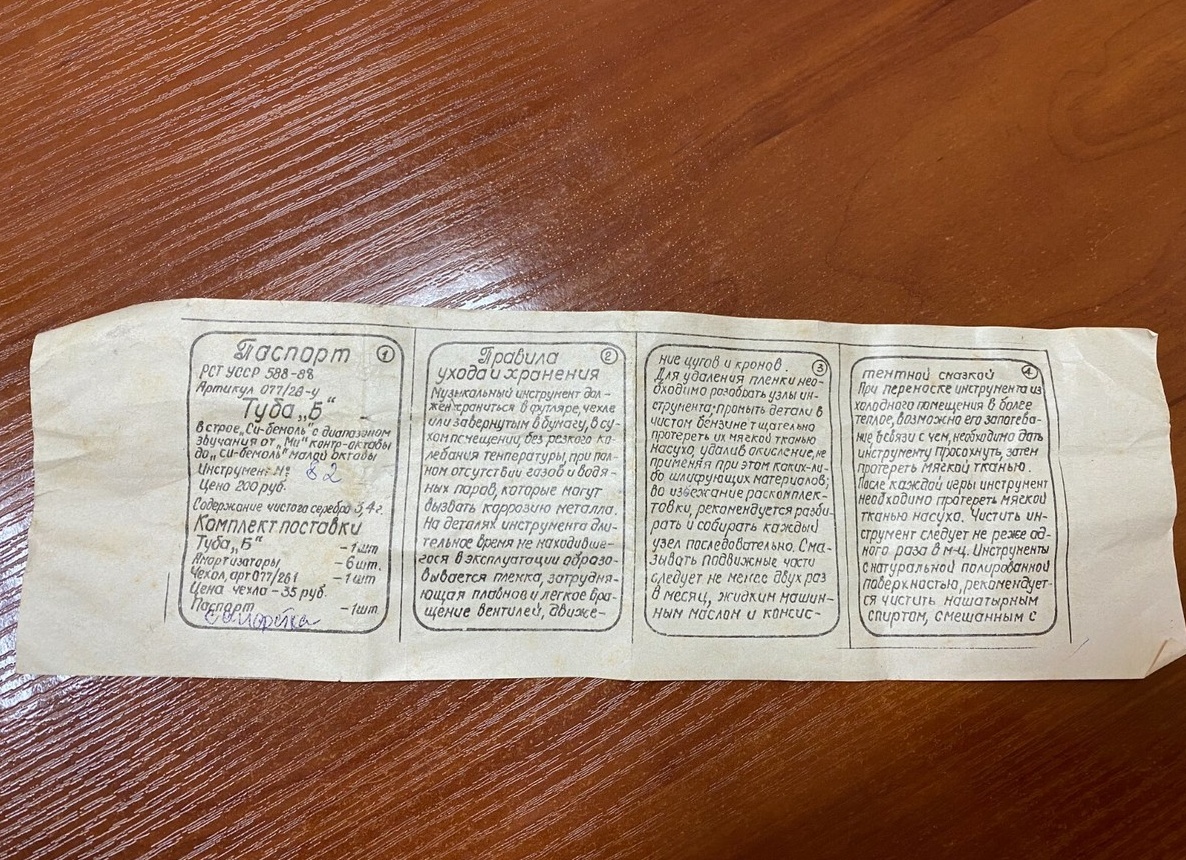 Паспорт 1
РСТ УССР 588-88
Артикул 077/26-у
Туба „Б“
в строе „Си-бемоль“ с диапазоном
звучания от „Ми“ контр-октавы
до „Си-бемоль“ малой октавы
Инструмент №
Цена 200 руб.
Содержание чистого серебра 5,4 г.
Комплект поставки
Туба „Б“ – 1 шт
Амортизаторы – 6 шт.
Чехол, арт 077/261 – 1 шт
Цена чехла – 35 руб.
Паспорт – 1 шт
Правила 2
ухода и хранения
Музыкальный инструмент дол-
жен храниться в футляре, чехле
или завернутым в бумагу, в су-
хом помещении, без резкого ко-
лебания температуры, при пол-
ном отсутствии газов и водя-
ных паров, которые могут
вызвать коррозию металла.
На деталях инструмента дли-
тельное время не находивше-
гося в эксплуатации образо-
вывается пленка, затрудня-
ющая плавное и легкое вра-
щение вентилей, движе-
ние цугов и кронов. 3
Для удаления пленки нео-
бходимо разобрать узлы ин-
струмента-промыть детали в
чистом бензине тщательно
протереть их мягкой тканью
насухо, удалив окисление, не
применяя при этом каких-ли-
бо шлифующих материалов;
во избежание раскомплек-
товки, рекомендуется разби-
рать и собирать каждый
узел последовательно. Сма-
зывать подвижные части
следует не менее двух раз
в месяц, жидким машин-
ным маслом и консис-
тентной смазкой 4
При переноске инструмента из
холодного помещения в более
теплое, возможно его запотева-
ние, в связи с чем, необходимо дать
инструменту просохнуть, затем
протереть мягкой тканью.
После каждой игры инструмент
необходимо протереть мягкой
тканью насухо. Чистить ин-
струмент следует не реже од-
ного раза в м-ц. Инструменты
с натуральной полированной
поверхностью, рекомендует-
ся чистить нашатырным
спиртом, смешанным с